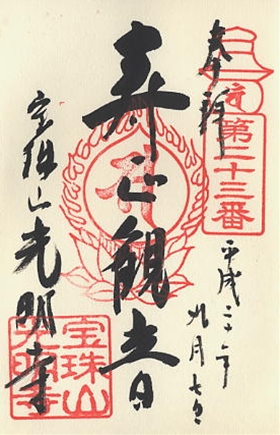 奉拝
第二十三番
平成二十年
九月七日
寿正観音
宝珠山光明寺
宝珠山
光明寺